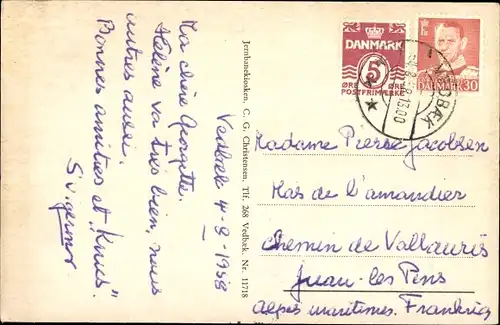 Vedbæk 4-8-1958
Ma chère Georgette.
Hélène va très bien, nous
autres aussi.
Bonnes amitiés et "Knus".
Svigermor.
Jernbanekiosken, C. G. Christensen, Tlf. 268 Vedbæk, Nr. 11718
DANMARK
5
ØRE ØRE
POSTFRIMÆRKE
DANMARK 30
VEDBÆK
13.00
Madame Pierre Jacobsen
Mas de l'amandier
Chemin de Vallauris
Juan-les Pins
Alpes maritimes. Frankrig